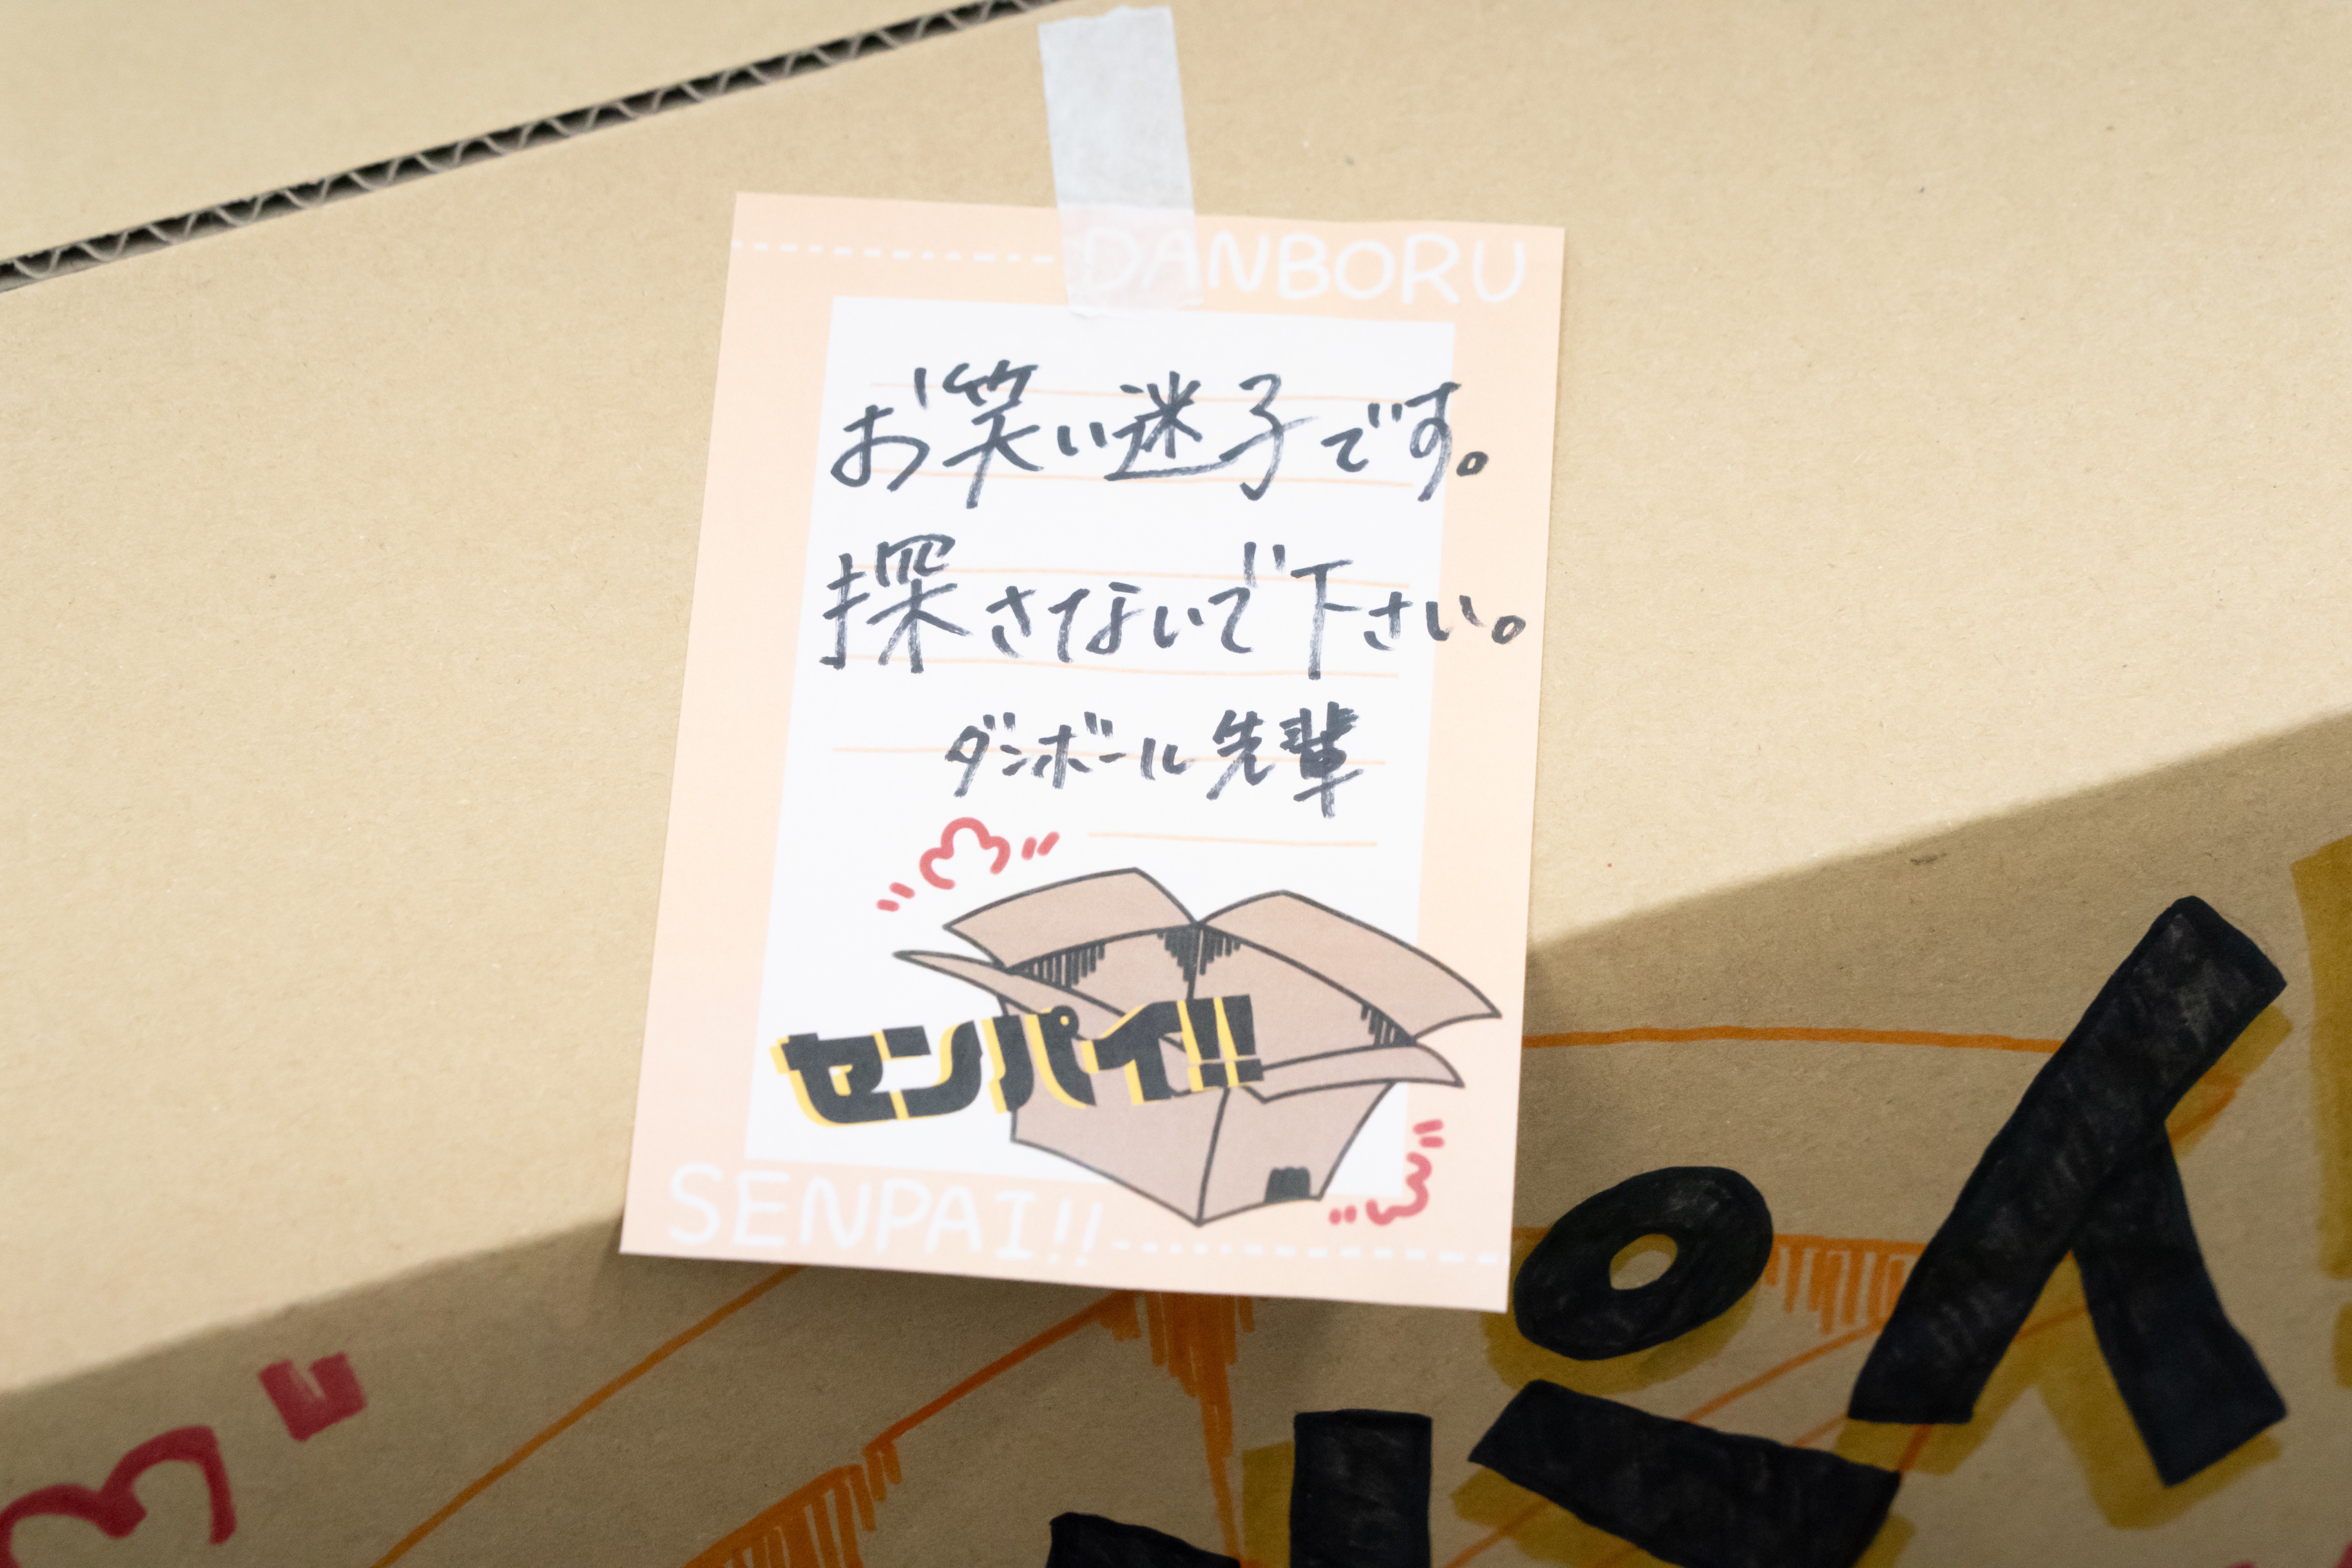 DANBORU
お笑い迷子です。
探さないで下さい。
ダンボール先輩
センパイ!!
SENPAI!!
パイ